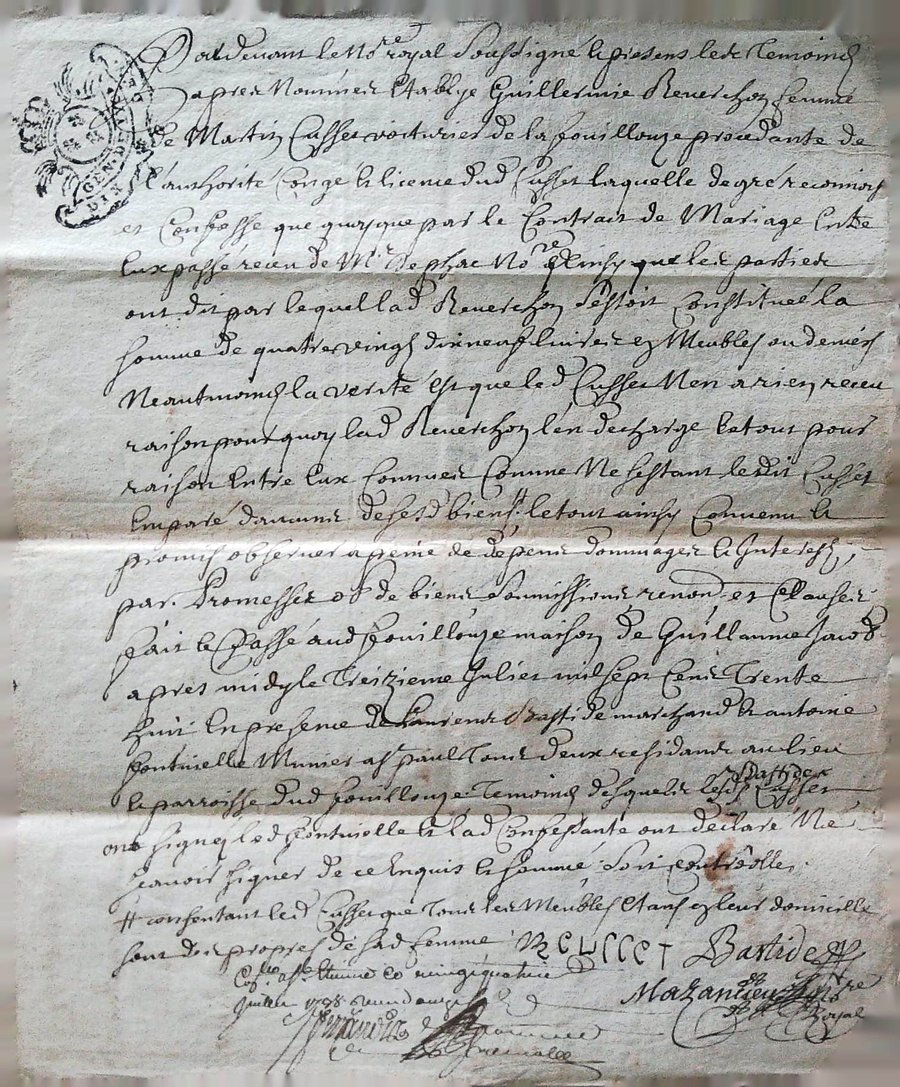 GEN. DE
DIX
Pardevant le No.re royal Soussigné & presens les Temoins
apres Nommes Establye Guillermie Reverchon femme
de Martin Cusset voiturier de la fouillouze procedante de
l'authorité Congé & licence dud Cusset laquelle de gré reconnois
et Confesse que quoyque par le Contrait de Mariage Entre
Eux passé receu de Me No.re & Ainsy que les parties
ont dit par lequel lad Reverchon S'estoit Constituée la
somme de quatrevingts dixneuf livres en Meubles ou deniers
Neantmoins la verité Est que led Cusset N'en a rien receu
raison pourquoy lad Reverchon l'en decharge & tout pour
raison Entre Eux Comme Ne s'estant ledit Cusset
Emparé d'aucuns de sesd biens # le tout ainsy Convenu &
promis observer a peine de depens dommages & Interests,
par Promesses ob de biens Soumissions renon.. et Clauses
fait & Passé aud fouillouze maison de Guillaume Jacob
apres midy le Treizieme Juliet mil sept Cens Trente
huit En presence de Laurens Bastide marchand & antoine
fontvielle Munier a St paul Tous deux residans au lieu
& parroisse dud fouillouze Temoins desquels lesd Bastide & Cusset
ont signé & led fontvielle & lad Confessante ont declaré Ne
scavoir signer de ce Enquis & sommé. Soit Controollé.
# consentant led Cusset que Tous les Meubles Etans en leur domicille
sont des propres de sad femme
M CUSSET Bastide
a St Etienne ce vingtquatrie
1738
Mazandieu No.re
Royal